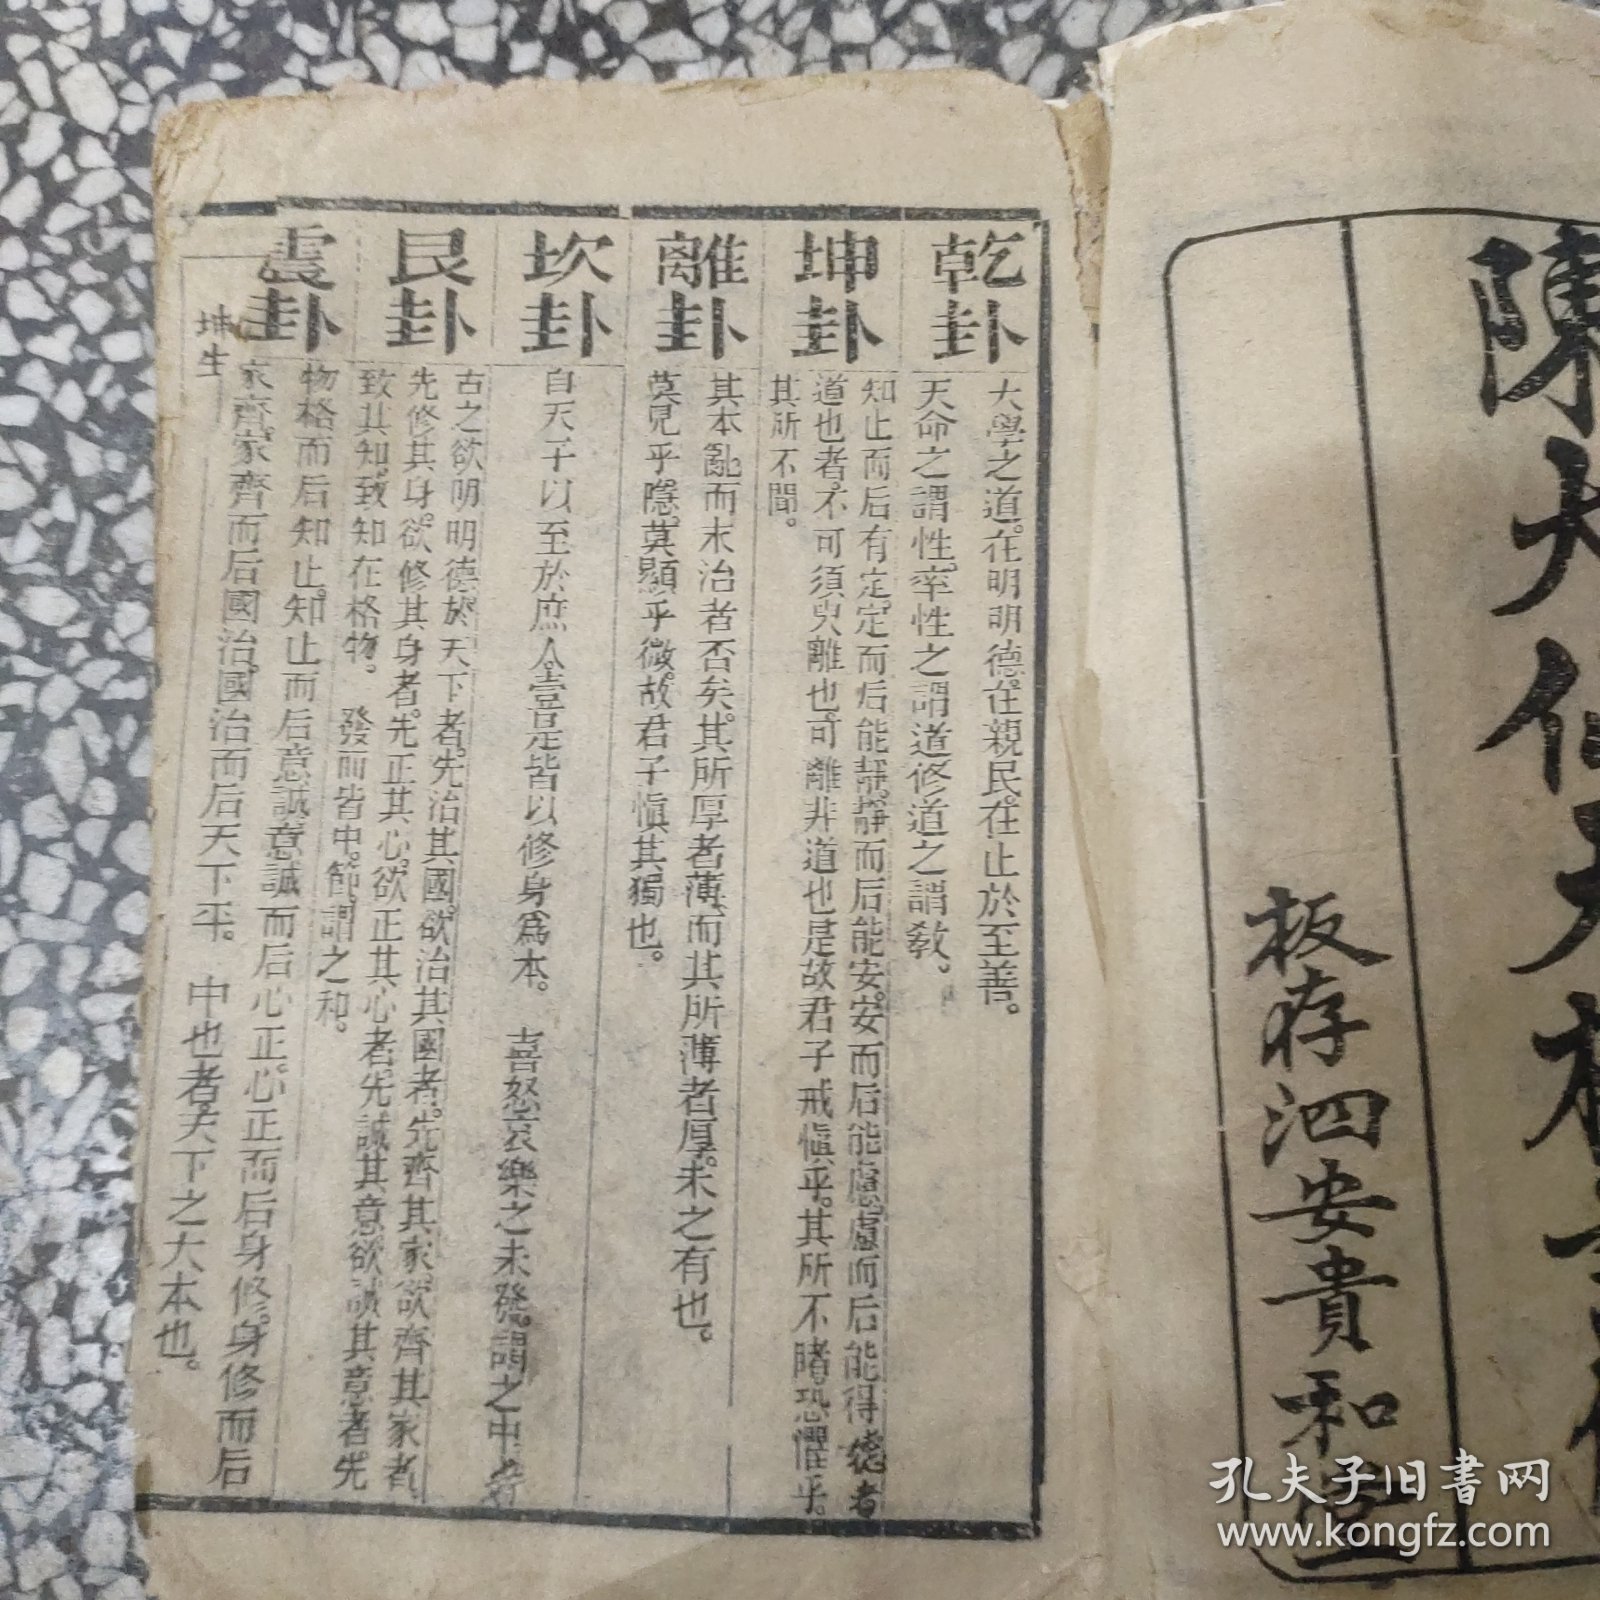 板存泗安貴和堂
乾卦
大學之道。在明明德。在親民。在止於至善。
天命之謂性。率性之謂道。修道之謂教。
坤卦
知止而后有定。定而后能靜。靜而后能安。安而后能慮。慮而后能得。德者
道也者。不可須臾離也。可離非道也。是故君子戒慎乎。其所不睹恐懼乎。
其所不聞。
離卦
其本亂而末治者否矣。其所厚者薄。而其所薄者厚。未之有也。
莫見乎隱。莫顯乎微。故君子慎其獨也。
坎卦
自天子以至於庶人。壹是皆以修身為本。 喜怒哀樂之未發。謂之中。
艮卦
古之欲明明德。於天下者。先治其國。欲治其國者。先齊其家。欲齊其家者。
先修其身。欲修其身者。先正其心。欲正其心者。先誠其意。欲誠其意者。先
致其知。致知在格物。 發而皆中。節謂之和。
震卦
物格而后知止。知止而后意誠。意誠而后心正。心正而后身修。身修而后
家齊。家齊而后國治。國治而后天下平。 中也者。天下之大本也。
坤生
孔夫子旧書网
www.kongfz.com